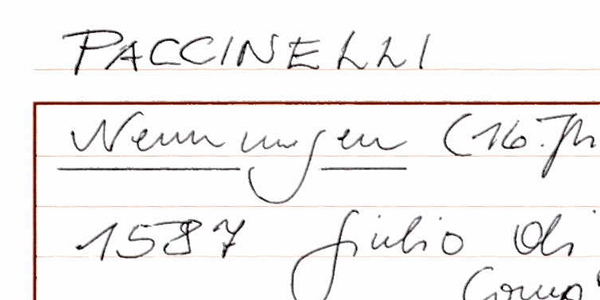 PACCINELLI
Nennungen (16. Jh
1587 Giulio di